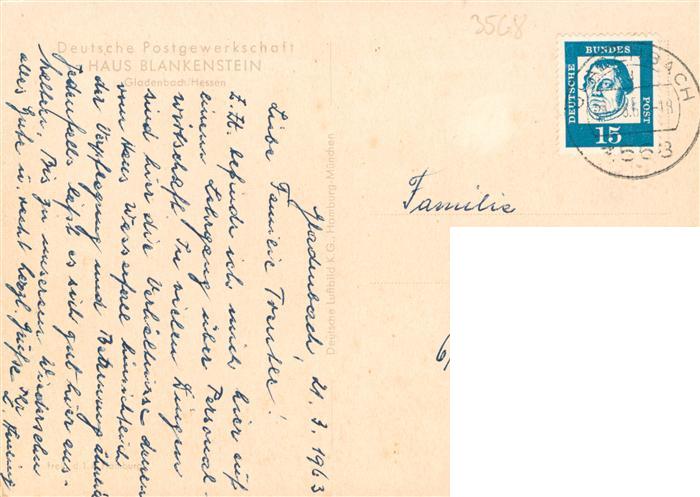 3568
Deutsche Postgewerkschaft
HAUS BLANKENSTEIN
Gladenbach/Hessen
DEUTSCHE BUNDES POST
15
Familie
Deutsche Luftbild K.G. Hamburg-München
Gladenbach, 21.3.1963
Liebe Familie
z. Zt. befinde ich mich hier auf
einem Lehrgang über Personal-
wirtschaft. In vielen Dingen
sind hier die Verhältnisse denen
vom Haus Wasserfall hinsichtlich
der Verpflegung und Betreuung ähnlich
Jedenfalls läßt es sich gut hier aus-
halten. Bis zu unserem Wiedersehn
alles Gute u. recht herzl. Grüße